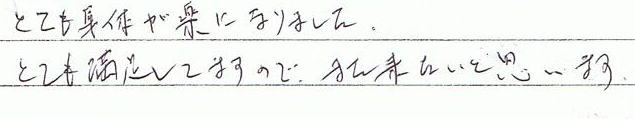 とても身体が楽になりました.
とても満足してますので、また来たいと思います.